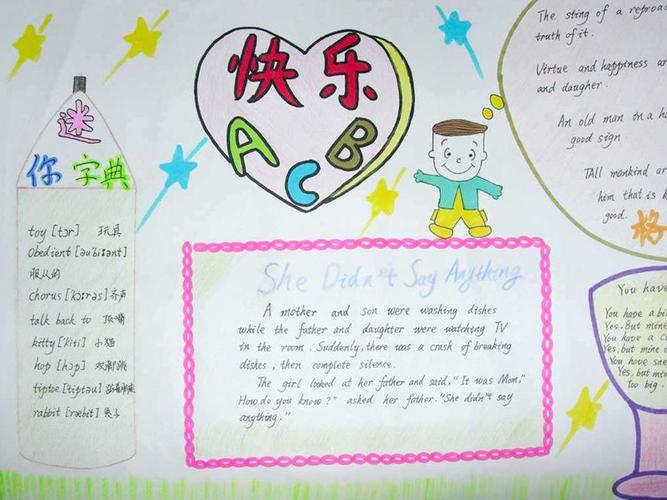 快乐
A C B
迷
你 字典
toy [tɔr] 玩具
Obedient [əu'bi:ənt]
服从的
chorus ['kɔ:rəs] 齐声
talk back to 顶嘴
kitty ['kiti] 小猫
hop [hɔp] 双脚跳
tiptoe ['tiptəu]
rabbit [ræbit] 兔子
She Didn't Say Anything
A mother and son were washing dishes
while the father and daughter were watching TV
in the room. Suddenly, there was a crash of breaking
dishes, then complete silence.
The girl looked at her father and said, "It was Mom."
How do you know?" asked her father. "She didn't say
anything."
The sting of a reproac
truth of it.
Virtue and happiness ar
and daugher.
An old man in a ho
good sign.
TAll mankind ar
him that is k
good.
格
You have
You have a bi
Yes. But mine
You have a co
Yes, but mine
You have sne
Yes, but min
Too big.